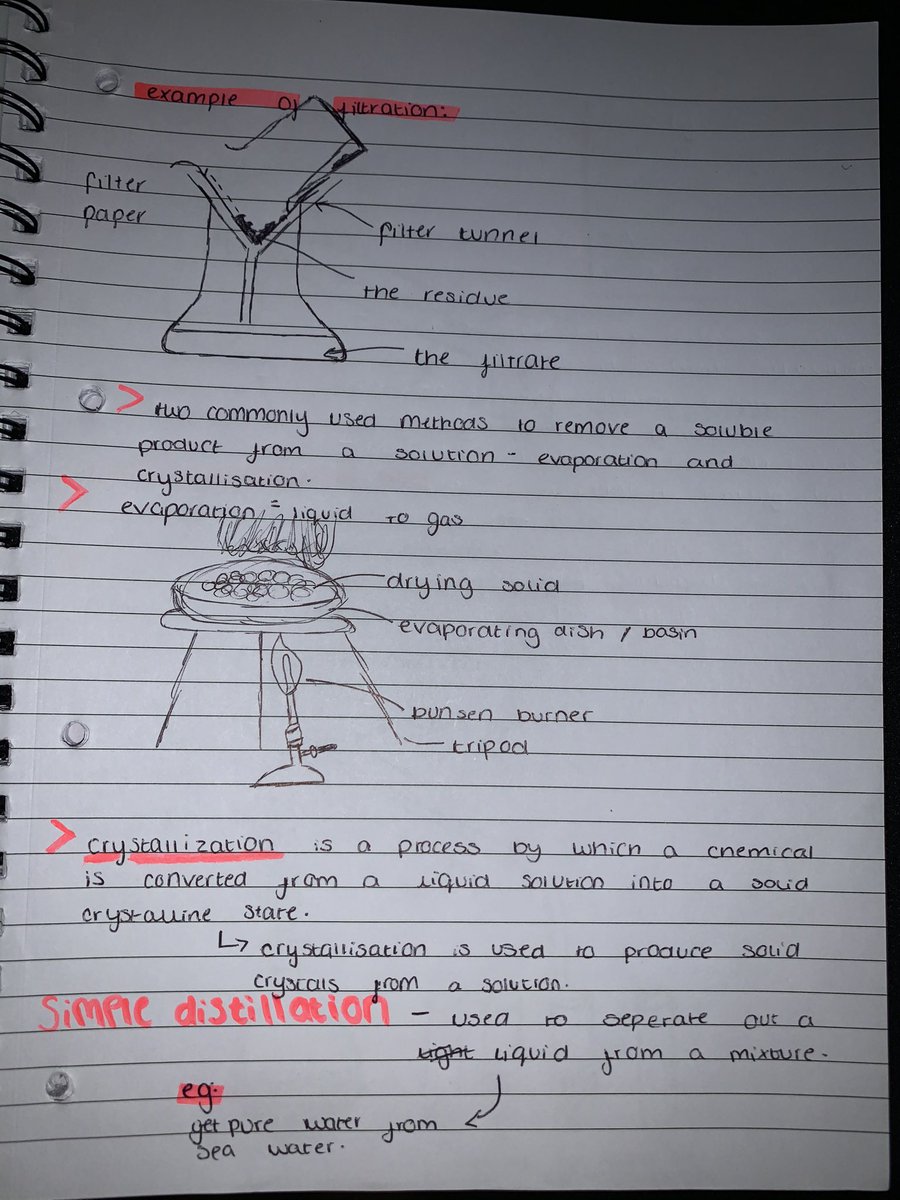 example of filtration:
filter
paper
filter tunnel
the residue
the filtrare
> two commonly used methods to remove a soluble
product from a solution - evaporation and
crystallisation.
> evaporation = liquid to gas
drying solid
evaporating dish / basin
bunsen burner
tripod
> crystallization is a process by which a chemical
is converted from a liquid solution into a solid
crystalline state.
↳ crystallisation is used to produce solid
crystals from a solution.
Simple distillation - used to seperate out a
light liquid from a mixture.
eg:
get pure water from
sea water.